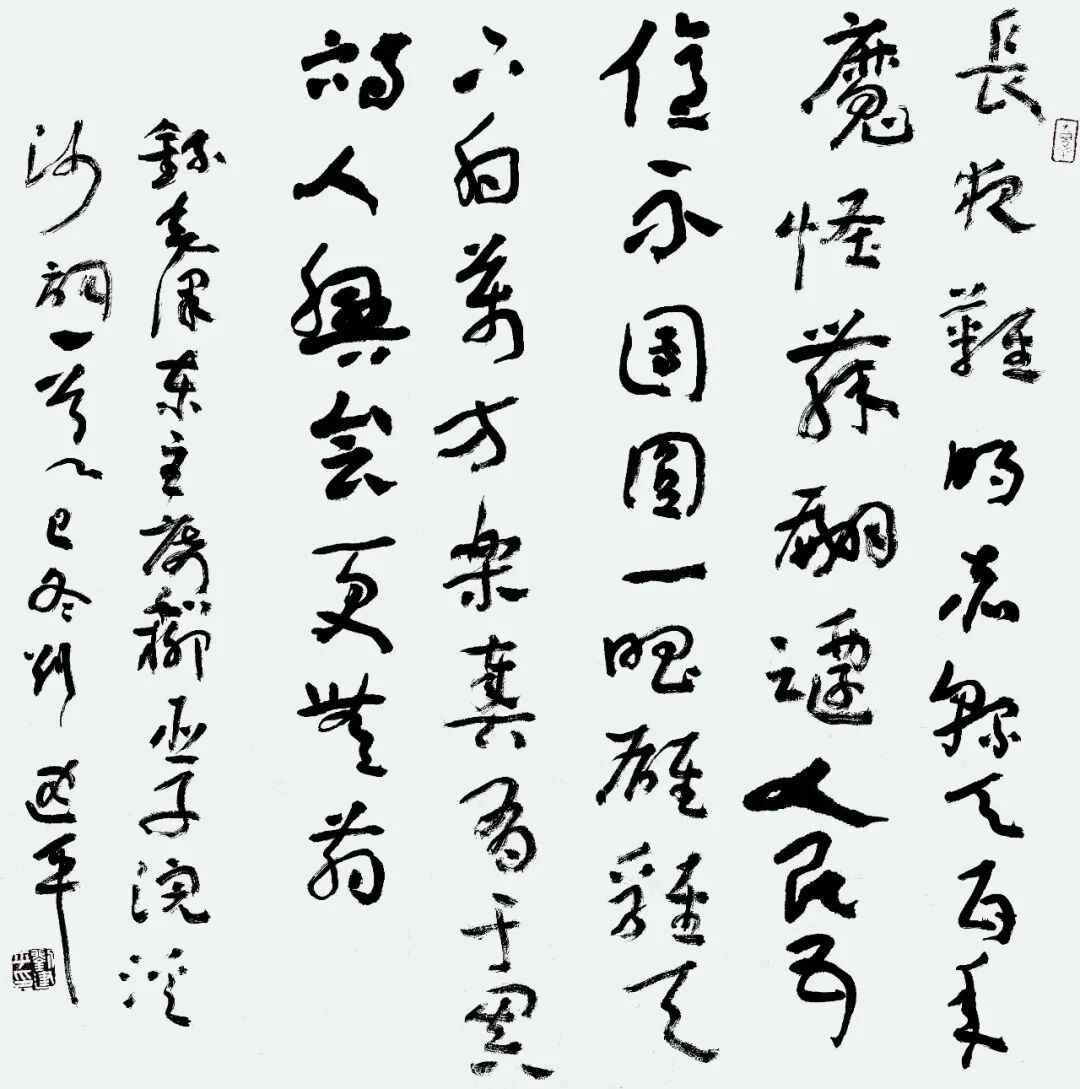 長夜難明赤縣天百年
魔怪舞翩躚人民五
億不團圓一唱雄雞天
下白萬方樂奏有于闐
詩人興會更無前
錄毛澤東主席和柳亞子浣溪
沙詞一首乙巳冬劉建平